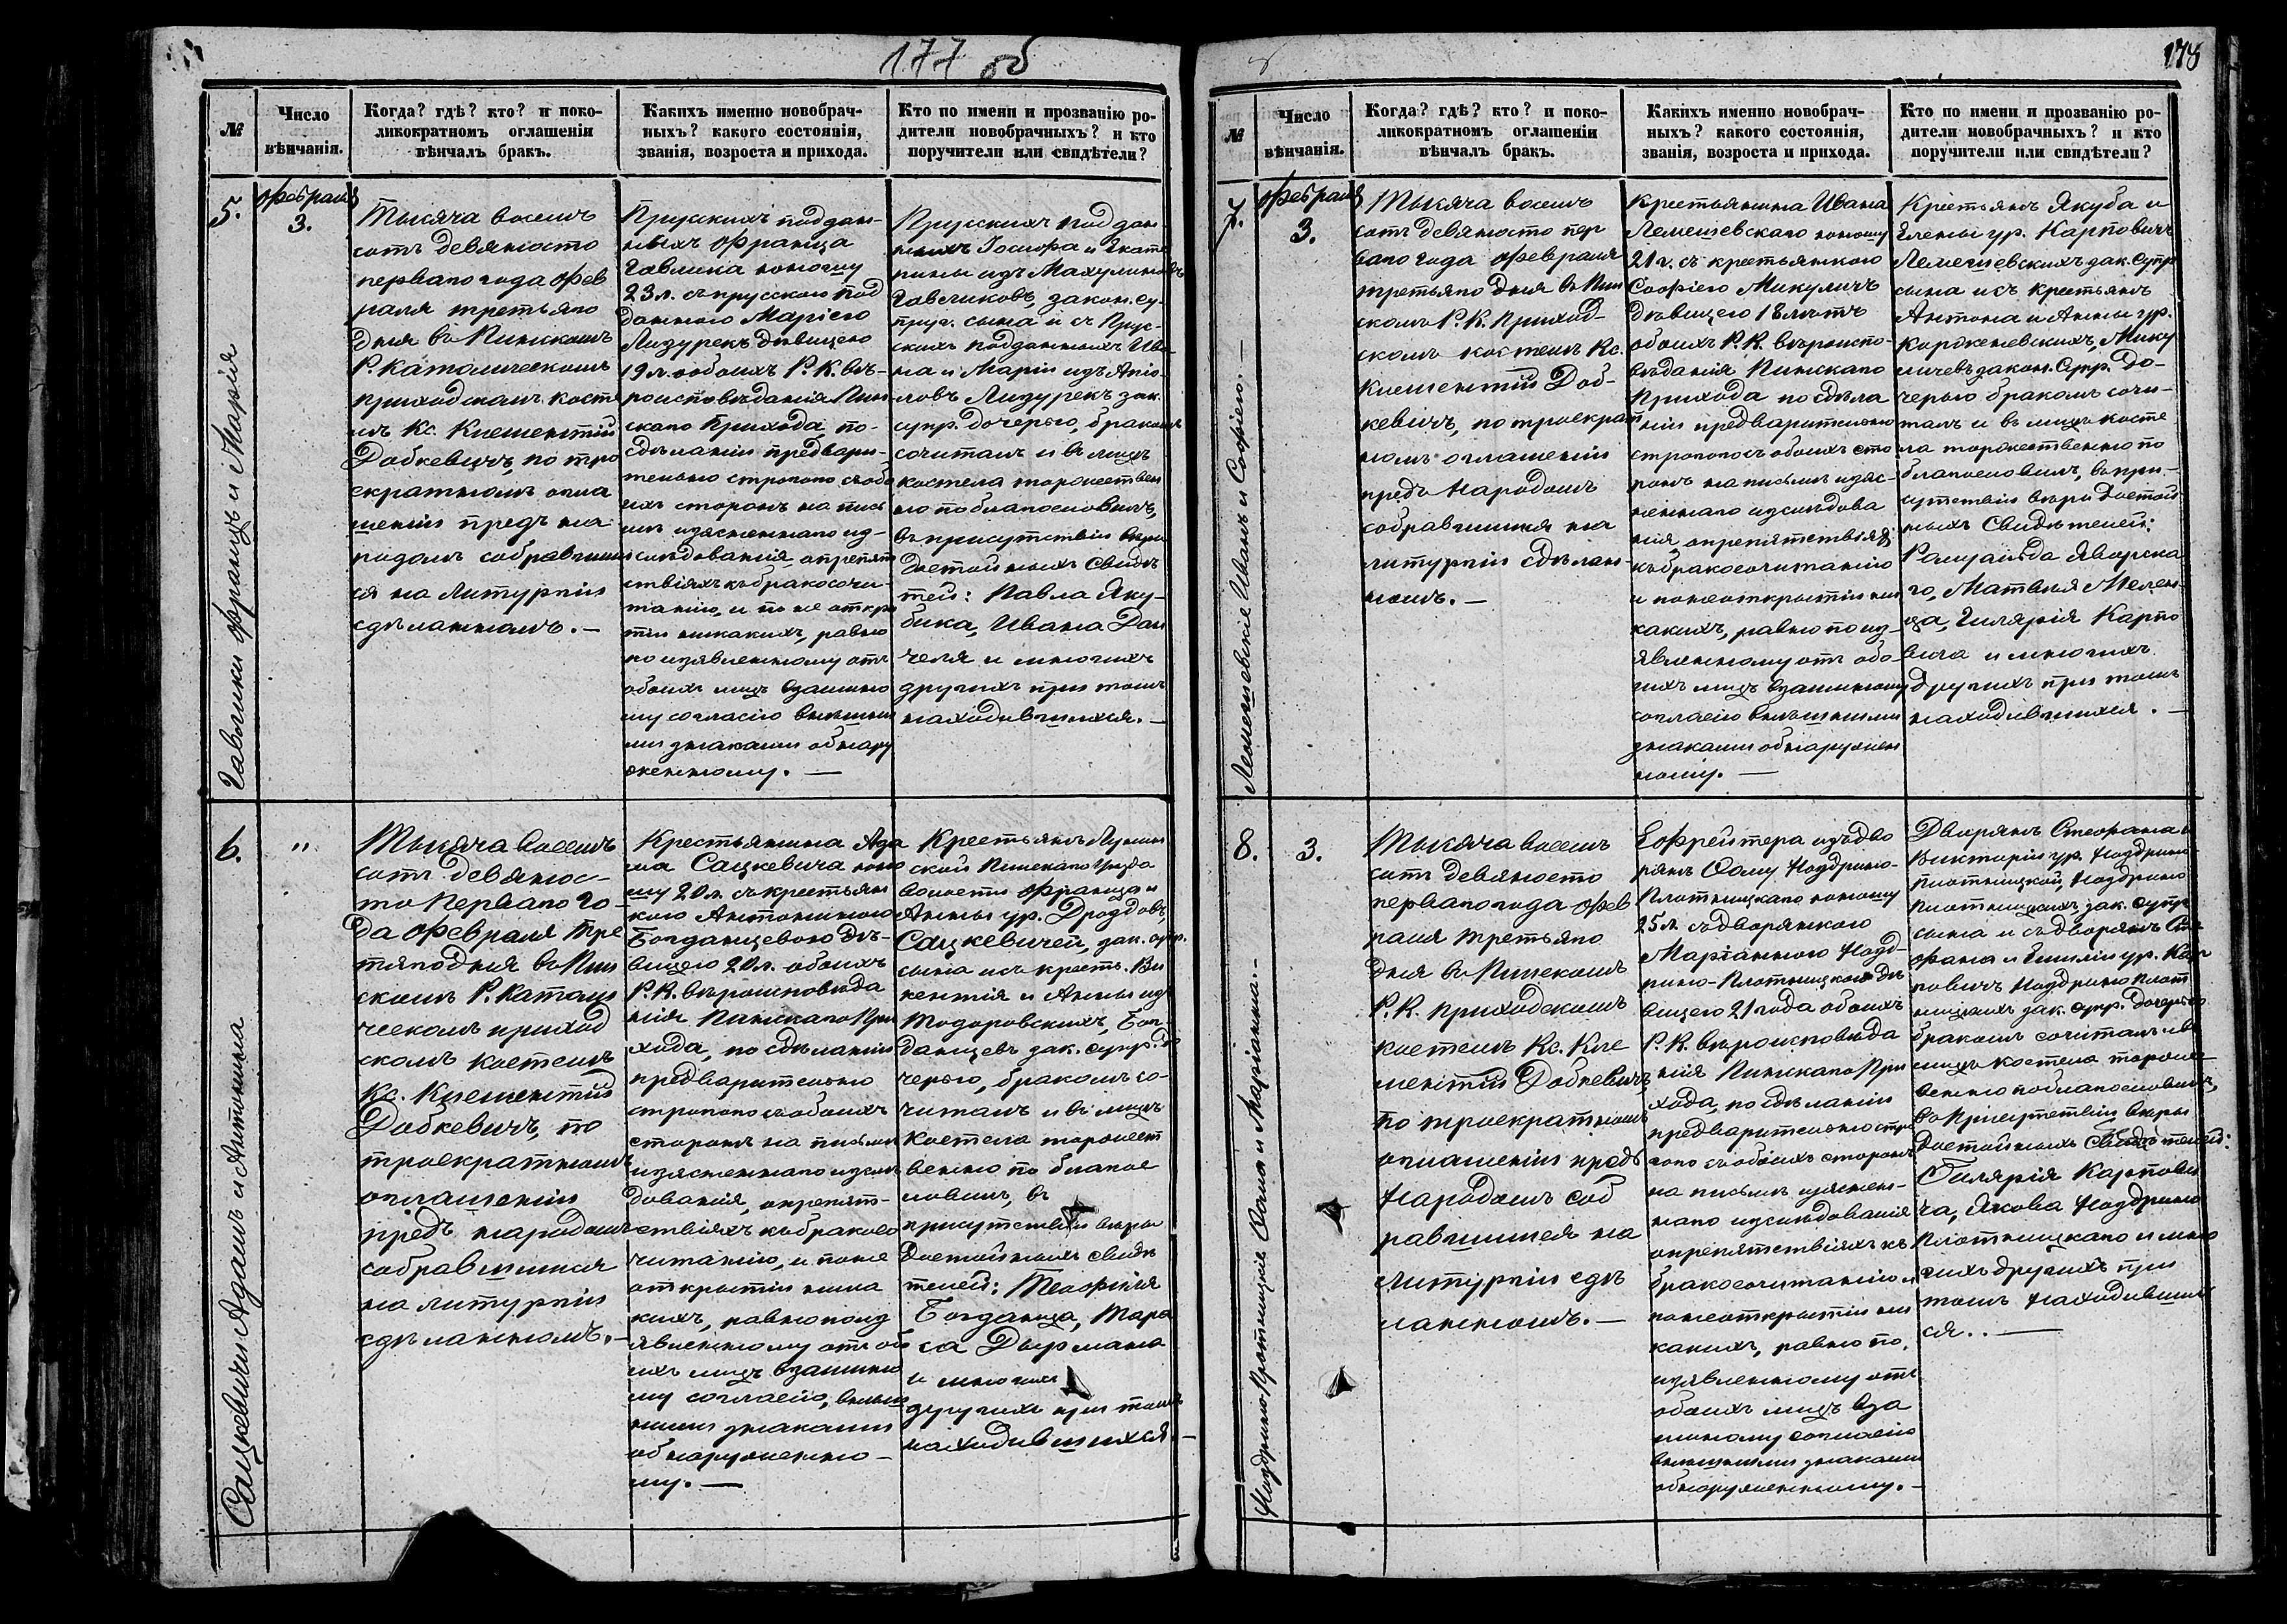 177 об
№
Число
вѣнчанія.
Когда? гдѣ? кто? и поко-
ликократномъ оглашеніи
вѣнчалъ бракъ.
Какихъ именно новобрач-
ныхъ? какого состоянія,
званія, возроста и прихода.
Кто по имени и прозванію ро-
дители новобрачныхъ? и кто
поручители или свидѣтели?
5.
Гавлики Францъ и Марія
Февраля
3.
Тысяча восемь
сотъ девяносто
перваго года Фев
раля третьяго
дня въ Пинскомъ
Р. Католическомъ
приходскомъ косте
лѣ Кс. Климентій
Добкевичъ, по тро
екратномъ огла
шеніи предъ на
родомъ собравшим
ся на Литургіи
сдѣланномъ. —
Прусскихъ поддан-
ныхъ Франца
Гавлика юношу
23 л. съ прусскою под
данною Маріею
Лизурекъ дѣвицею
19 л. обоихъ Р. К. вѣ-
роисповѣданія Пин
скаго Прихода, по
сдѣланіи предвари-
тельно строгого съ обо
ихъ сторонъ на пись
мѣ изясненнаго из-
слѣдованія о препят
ствіяхъ къ бракосоче-
танію, и по не откры
тіи никакихъ, равно
по изявленному отъ
обоихъ лицъ взаимно
му согласію внѣшни
ми знаками обнару
женному. —
Прусскихъ поддан
ныхъ Іосифа и Екате
рины изъ
Гавликовъ, закон. су-
пруг. сына и съ Прус-
скихъ подданныхъ Ива-
на и Маріи изъ
Лизурекъ зак.
супр. дочерью, бракомъ
сочиталъ и въ лицѣ
костела торжествен
но поблагословилъ,
въ присутствіи вѣры
достойныхъ Свидѣ
тей: Павла Яку-
бика, Ивана Дан
челя и многихъ
другихъ при томъ
находившихся. —
6.
Сацкевичи Адамъ и Антонина
"
Тысяча восемь
сотъ девянос-
то Перваго Го-
да Февраля тре
тяго дня въ Пин
скомъ Р. Катали
ческомъ приход
скомъ костелѣ
Кс. Климентій
Добкевичъ, по
троекратномъ
оглашеніи
предъ народомъ
собравшимся
на литургіи
сдѣланномъ. —
Крестьянина Ада
ма Сацкевича юно
шу 20 л. съ крестьян
кою Антониною
Богданцевою дѣ-
вицею 20 л. обоихъ
Р. К. вѣроисповѣда
нія Пинскаго При
хода, по сдѣланіи
предварительно
строгого съ обоихъ
сторонъ на письмѣ
изясненнаго изслѣ
дованія, о препят-
ствіяхъ къ бракосо
читанію, и по не
открытіи ника
кихъ, равно по из
явленному отъ обо
ихъ лицъ взаимно
му согласію, внѣш
ними знаками
обнаруженно-
му. —
Крестьянъ Лунин
ской Пинскаго Уѣзда
волости Франца и
Анны ур. Дроздовъ
Сацкевичей, зак. супр.
сына и съ кресть. Ви
кентія и Анны изъ
Тодоровскихъ, Бог
данцевъ зак. супр. до
черью, бракомъ со-
читалъ и въ лицѣ
Костела торжест
венно по благос
ловилъ, въ
присутствіи вѣры
достойныхъ свидѣ
телей: Теофиля
Богданца, Тара
са Дырмана
и многихъ
другихъ при томъ
находившихся. —
178
№
Число
вѣнчанія.
Когда? гдѣ? кто? и поко-
ликократномъ оглашеніи
вѣнчалъ бракъ.
Какихъ именно новобрач-
ныхъ? какого состоянія,
званія, возроста и прихода.
Кто по имени и прозванію ро-
дители новобрачныхъ? и кто
поручители или свидѣтели?
7.
Лемешевскіе Иванъ и Софіею. —
Февраля
3.
Тысяча восемь
сотъ девяносто пер
ваго года Февраля
третьяго дня въ Пин
скомъ Р. К. Приход-
скомъ костелѣ Кс.
Климентій Доб-
кевичъ, по троекрат
номъ оглашеніи
предъ Народомъ
собравшимся на
литургіи сдѣлан-
номъ. —
Крестьянина Ивана
Лемешевскаго юношу
21 г. съ крестьянкою
Софіею Микуличъ
дѣвицею 18 лѣтъ
обоихъ Р. К. вѣроиспо-
вѣданія Пинскаго
Прихода по сдѣла
ніи предварительно
строгого съ обоихъ сто
ронъ на письмѣ изяс-
неннаго изслѣдова
нія о препятствіяхъ
къ бракосочитанію
и по не открытіи ни
какихъ, равно по из-
явленному отъ обо
ихъ лицъ взаимному
согласію внѣшними
знаками обнаружен
ному. —
Крестьянъ Якуба и
Елены ур. Карповичъ
Лемешевскихъ зак. супр.
сына и съ крестьянъ
Антона и Анны ур.
Корженевскихъ, Мику
личевъ закон. Супр. до-
черью бракомъ сочи-
талъ и въ лицѣ косте
ла торжественно по
благословилъ, въ при-
сутствіи вѣры достой
ныхъ Свидѣтелей:
Ромуальда Яворска
го, Матвѣя Мелен-
ца, Гилярія Карпо
вича и многихъ
другихъ при томъ
находившихся. —
8.
Ноздрино-Плотницкіе Ѳома и Маріанна. —
3.
Тысяча восемь
сотъ девяносто
перваго года Фев
раля третьяго
дня въ Пинскомъ
Р. К. приходскомъ
костелѣ Кс. Кли
ментій Добкевичъ,
по троекратномъ
оглашеніи предъ
Народомъ соб
равшимся на
литургіи сдѣ
ланномъ. —
Ефрейтера изъ дво
рянъ Ѳому Ноздрино-
Плотницкаго юношу
25 л. съ дворянкою
Маріанною Нозд-
рино-Плотницкою дѣ
вицею 21 года обоихъ
Р. К. вѣроисповѣда
нія Пинскаго При
хода, по сдѣланіи
предварительно стро
гого съ обоихъ сторонъ
на письмѣ изяснен-
наго изслѣдованія
о препятствіяхъ къ
бракосочитанію и
по не открытіи ни
какихъ, равно по,
изявленному отъ
обоихъ лицъ вза
имному согласію
внѣшними знаками
обнаруженному. —
Дворянъ Стефана и
Викторіи ур. Ноздрино-
Плотницкой, Ноздрино
Плотницкихъ зак. супр
сына и съ дворянъ Сте
фана и Емиліи ур. Кар
повичъ Ноздрино Плот
ницкихъ зак. супр. дочерью
бракомъ сочиталъ и въ
лицѣ костела торжест
венно поблагословилъ,
въ Присутствіи вѣры
достойныхъ Свидѣтелей:
Гилярія Карпови
ча, Якова Ноздрино
Плотницкаго и мно
гихъ другихъ при
томъ находивших
ся.. —